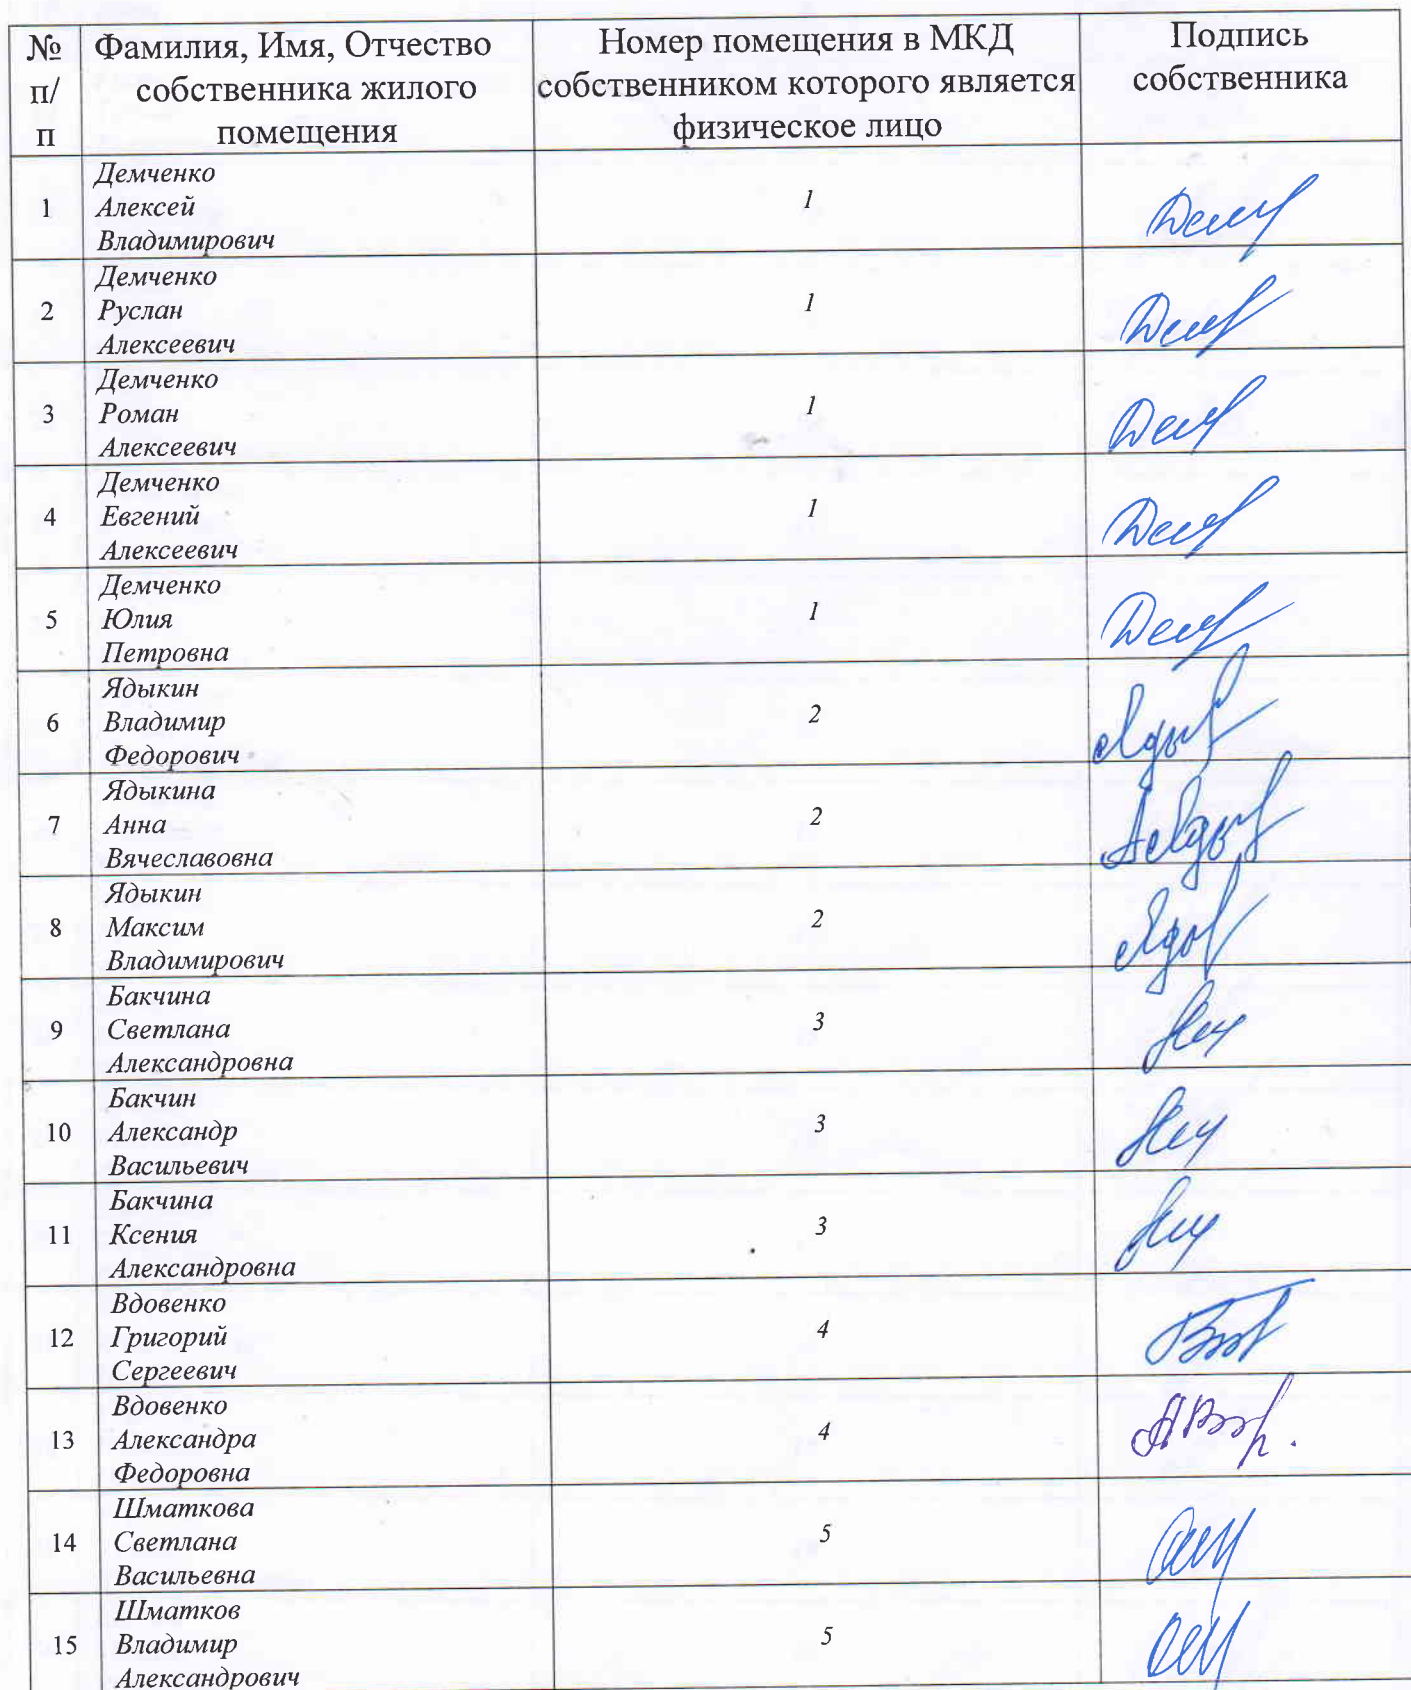 № п/п Фамилия, Имя, Отчество собственника жилого помещения Номер помещения в МКД собственником которого является физическое лицо Подпись собственника
1 Демченко Алексей Владимирович 1
2 Демченко Руслан Алексеевич 1
3 Демченко Роман Алексеевич 1
4 Демченко Евгений Алексеевич 1
5 Демченко Юлия Петровна 1
6 Ядыкин Владимир Федорович 2
7 Ядыкина Анна Вячеславовна 2
8 Ядыкин Максим Владимирович 2
9 Бакчина Светлана Александровна 3
10 Бакчин Александр Васильевич 3
11 Бакчина Ксения Александровна 3
12 Вдовенко Григорий Сергеевич 4
13 Вдовенко Александра Федоровна 4
14 Шматкова Светлана Васильевна 5
15 Шматков Владимир Александрович 5